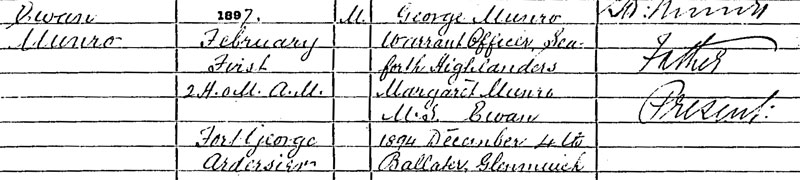 Ewan 1897. M. George Munro
Munro February Warrant Officer, Sea-
First forth Highlanders Father
2 H. 0 M. A.M. Margaret Munro
M.S. Ewan Present.
Fort George 1894 December 4th
Ardersier Ballater, Glenmuick